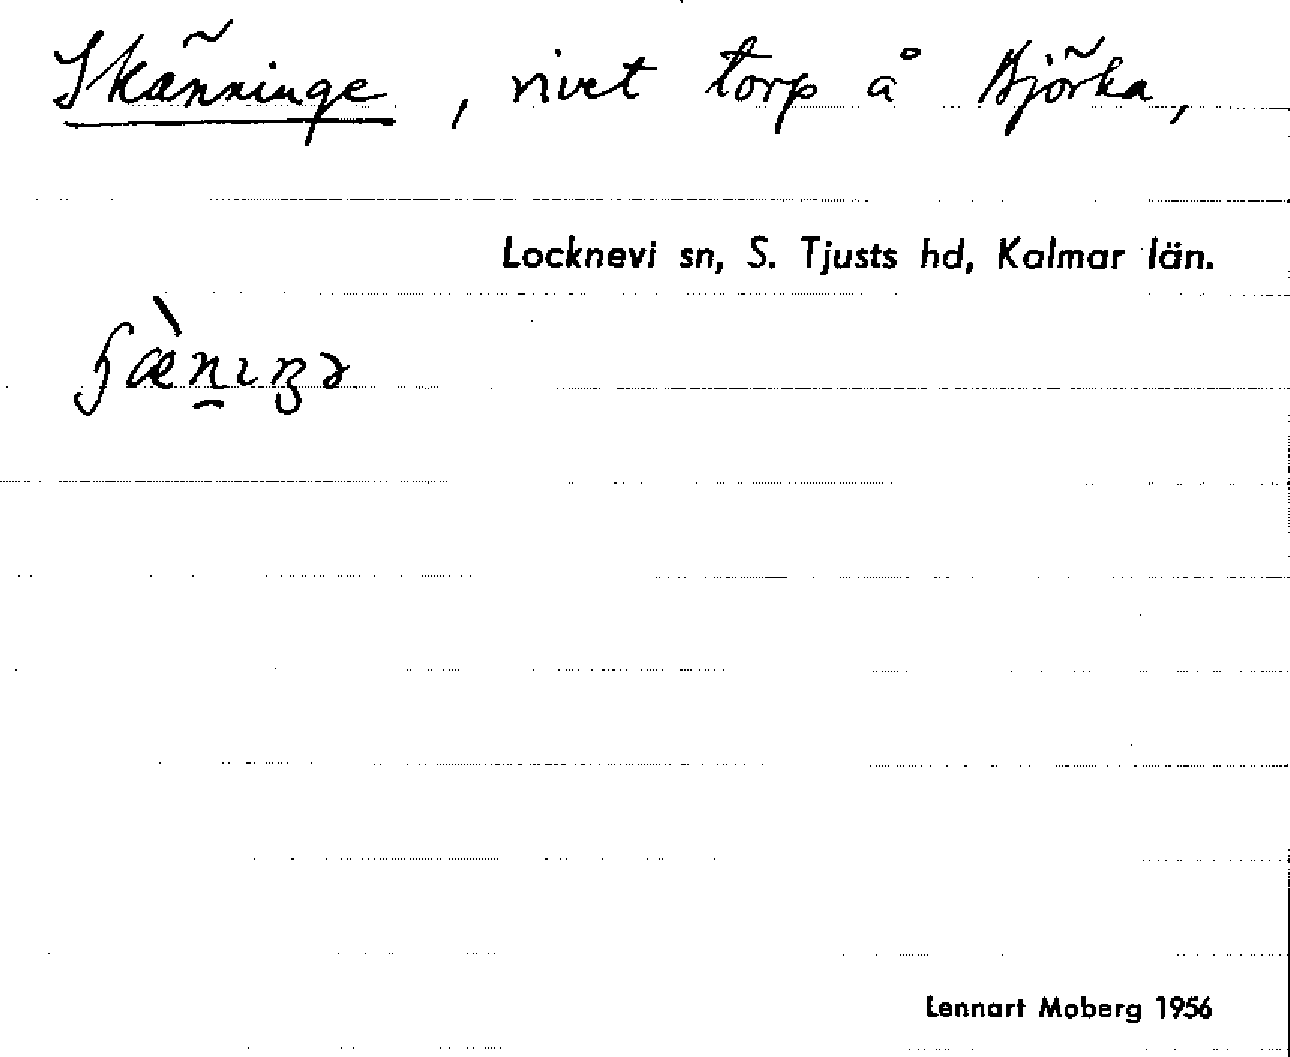 Skänninge, rivet torp å Björka,
Locknevi sn, S. Tjusts hd, Kalmar län.
Lennart Moberg 1956